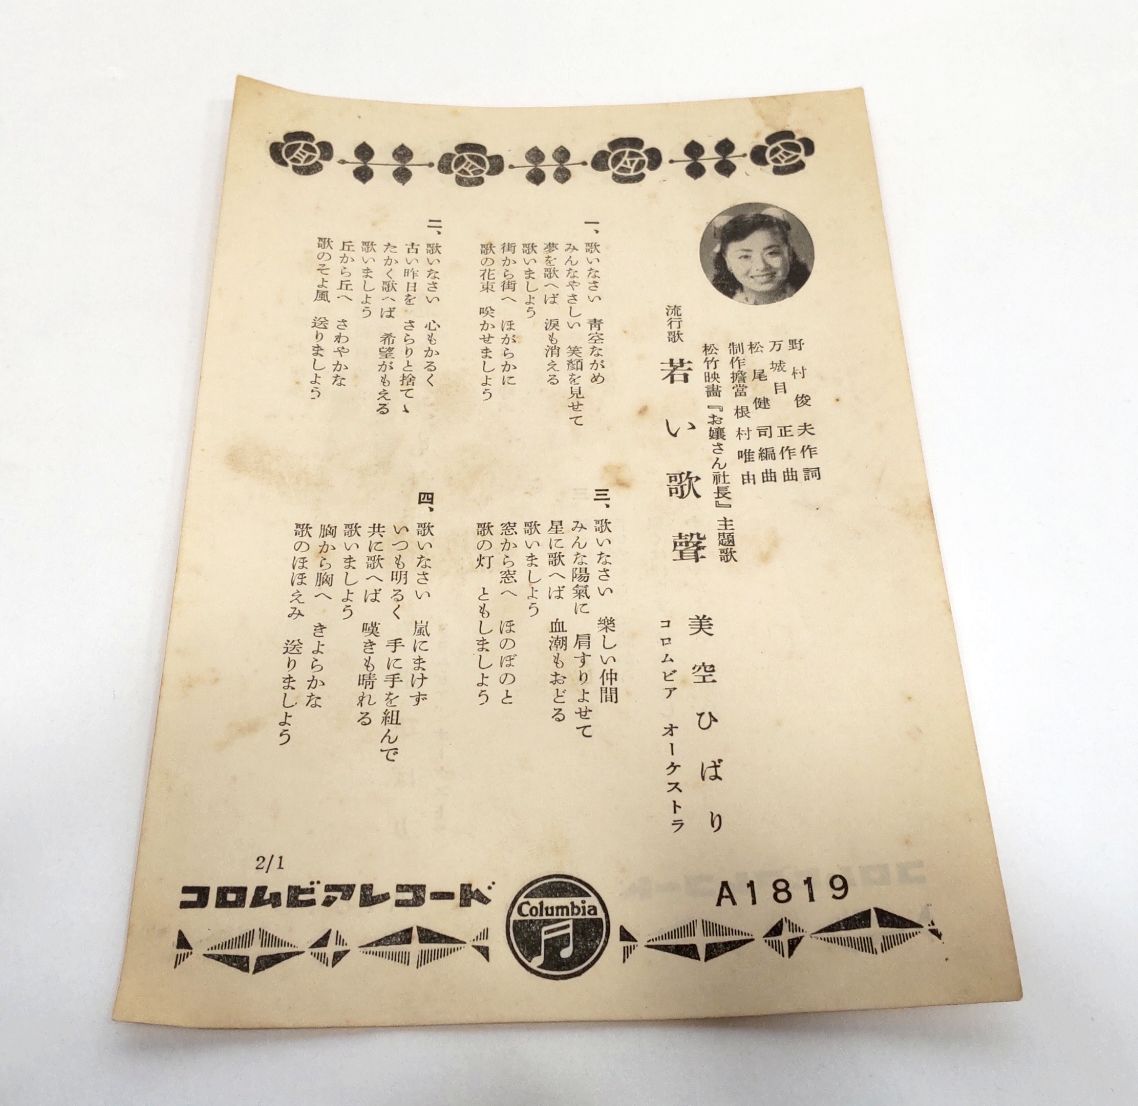 野村俊夫作詞
万城目正作曲
松尾健司編曲
制作擔當 根村唯由
松竹映畵『お孃さん社長』主題歌
流行歌 若い歌聲 美空ひばり
コロムビア オーケストラ
一、歌いなさい 靑空ながめ
みんなやさしい 笑顏を見せて
夢を歌へば 淚も消える
歌いましよう
街から街へ ほがらかに
歌の花束 咲かせましよう
二、歌いなさい 心もかるく
古い昨日を さらりと捨てゝ
たかく歌へば 希望がもえる
歌いましよう
丘から丘へ さわやかな
歌のそよ風 送りましよう
三、歌いなさい 樂しい仲間
みんな陽氣に 肩すりよせて
星に歌へば 血潮もおどる
歌いましよう
窓から窓へ ほのぼのと
歌の灯 ともしましよう
四、歌いなさい 嵐にまけず
いつも明るく 手に手を組んで
共に歌へば 嘆きも晴れる
歌いましよう
胸から胸へ きよらかな
歌のほほえみ 送りましよう
2/1
コロムビアレコード
Columbia
A1819